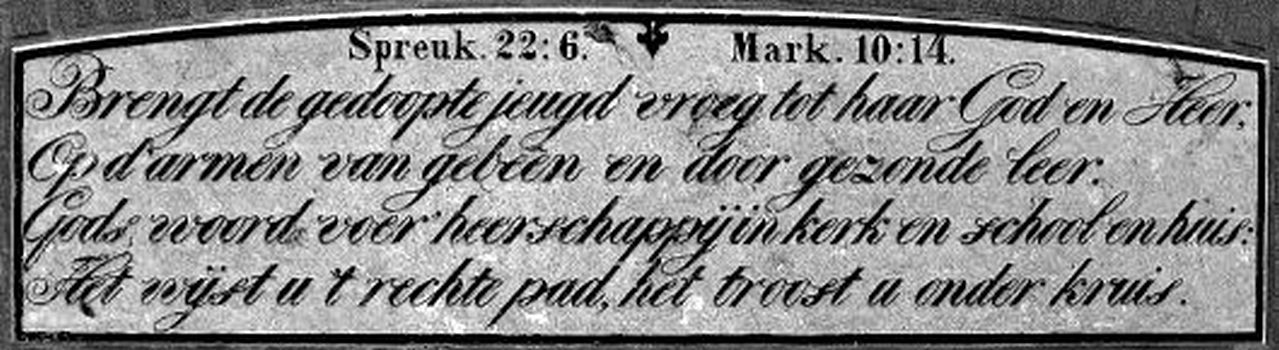 Spreuk. 22:6. Mark. 10:14.
Brengt de gedoopte jeugd vroeg tot haar God en Heer,
Op d'armen van gebeên en door gezonde leer.
Gods woord voer' heerschappij in kerk en school en huis:
Het wijst u 't rechte pad, het troost u onder kruis.